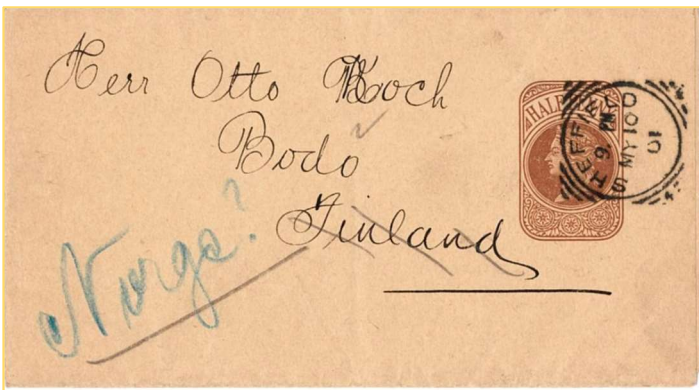 Herr Otto Koch
Bodo
Finland
Norge?
HALFPENNY
SHEFFIELD
9. PM
MY 10
01